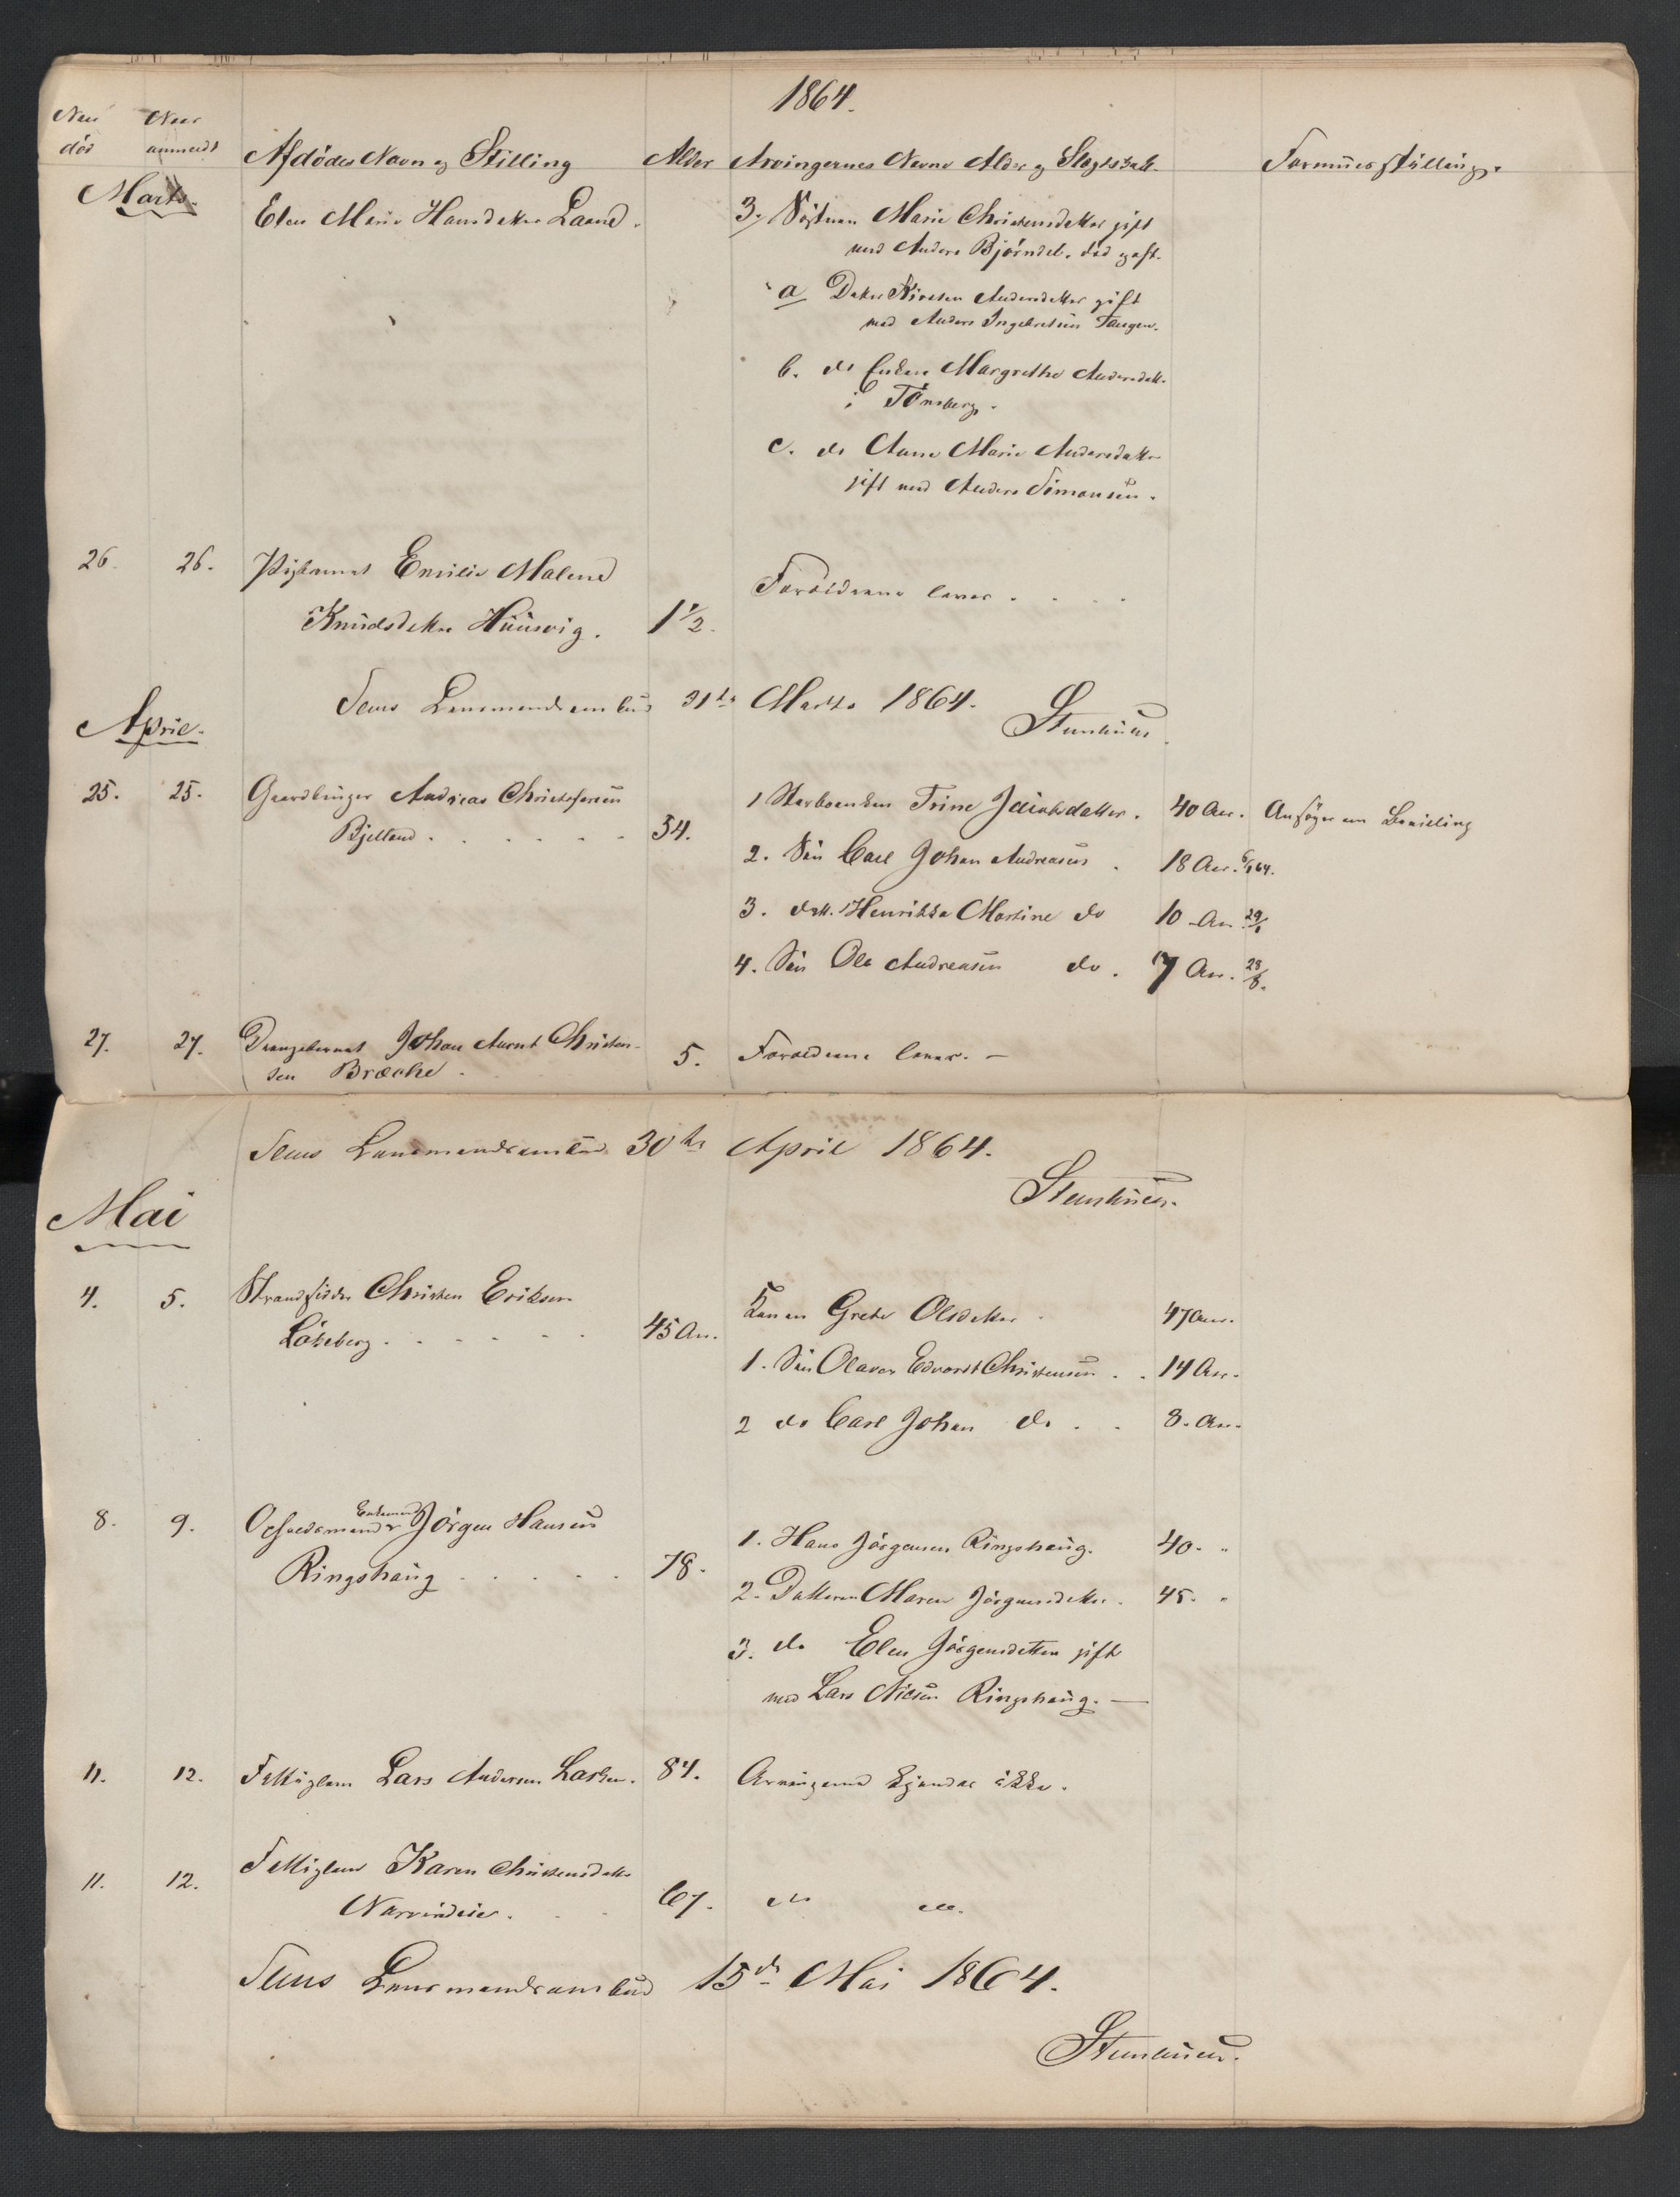 1864.
Naar Naar
død anmeldt Afdødes Navn og Stilling Alder Arvingernes Navne Alder og Slægtskab. Formuesstilling.
Marts.
Elen Marie Hansdatter Laane. 3. Søsteren Marie Christensdatter gift
med Anders Bjørndal. død og eft.
a Datter Kirsten Andersdatter gift
med Anders Ingebretsen Haugen.
b. do Enken Margrethe Andersdatt.
i Tønsberg.
c. do Anne Marie Andersdatter
gift med Anders Simonsen.
26. 26. Pigebarnet Emilie Malene
Knudsdatter Huusvig. 1 1/2. Forældrene lever . . . .
Sems Lensmandsombud 31te Marts 1864.
Stenhuus.
April.
25. 25. Gaardbruger Andreas Christofersen
Bjelland . . . . . . 54.
1 Stervboenken Trine Jacobsdatter. 40 Aar. Ansøger om Bevilling
2. Søn Carl Johan Andreasen . 18 Aar. 6/1 64.
3. Datt. Henrikka Martine do 10 Aar 29/1
4. Søn Ole Andreasen do. 7 Aar. 28/8.
27. 27. Drengebarnet Johan Arent Christen-
sen Bræche . 5. Forældrene lever. —
Sems Lensmandsombud 30te April 1864.
Stenhuus.
Mai
4. 5. Strandsidder Christen Eriksen
Løkeberg . . . . . . 45 Aar.
Konen Grethe Olsdatter . 47 Aar.
1. Søn Olaves Edvardt Christensen . . 14 Aar.
2 do Carl Johan do . . 8. Aar.
8. 9. Opholdsmand & Enkemand Jørgen Hansen
Ringshaug . . . . . 78.
1. Hans Jørgensen Ringshaug. 40. "
2. Datteren Maren Jørgensdatter. 45. "
3. do Elen Jørgensdatter gift
med Lars Nielsen Ringshaug. —
11. 12. Fattiglem Lars Andersen Larken. 84. Arvingerne kjendes ikke.
11. 12. Fattiglem Karen Christensdatter
67. do do.
Sems Lensmandsombud 15de Mai 1864.
Stenhuus.